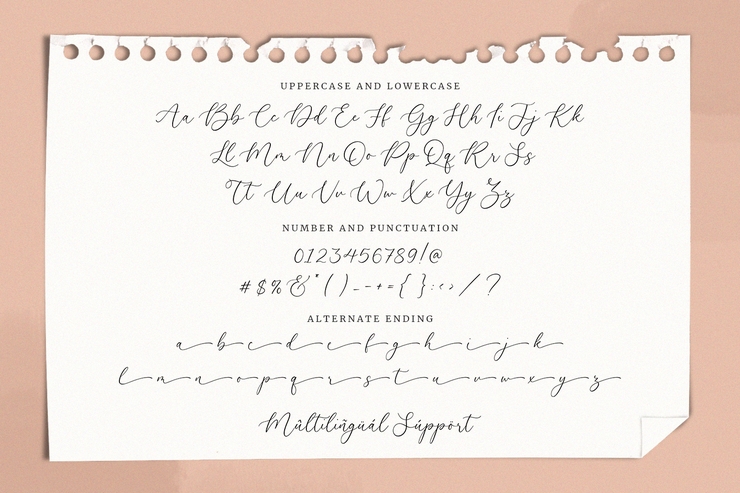 UPPERCASE AND LOWERCASE
Aa Bb Cc Dd Ee Ff Gg Hh Ii Jj Kk
Ll Mm Nn Oo Pp Qq Rr Ss
Tt Uu Vv Ww Xx Yy Zz
NUMBER AND PUNCTUATION
0123456789!@
#$%&*()_-+={}:<>/?
ALTERNATE ENDING
a b c d e f g h i j k
l m n o p q r s t u v w x y z
Mùltilìñgüál Súppört